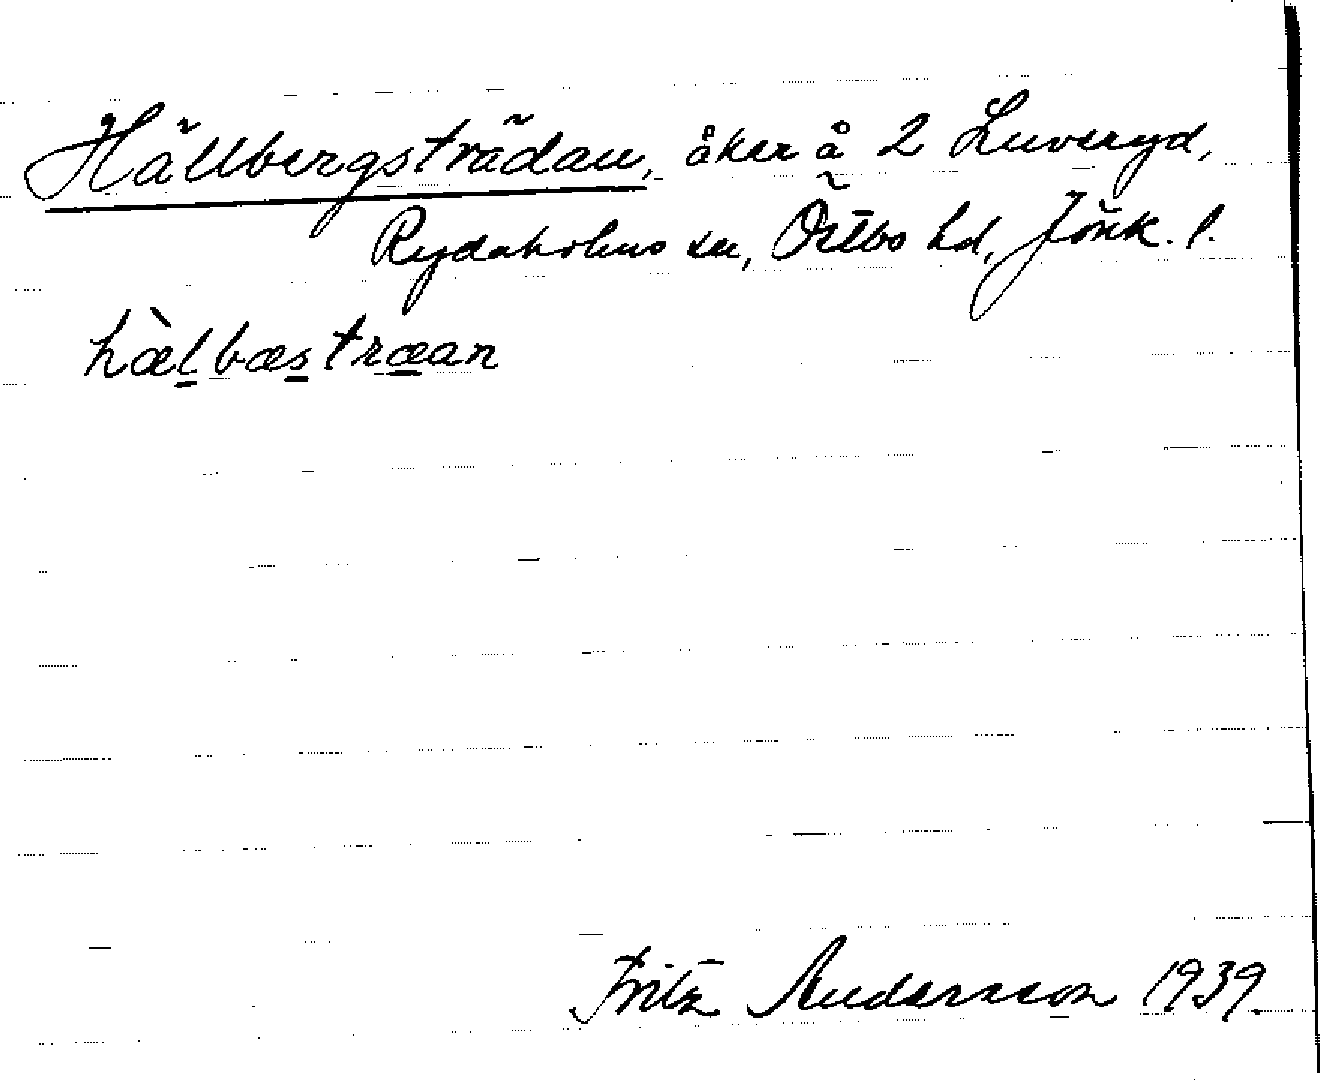 Hällbergsträdan, åker å 2 Luveryd,
Rydaholms sn, Östbo hd, Jönk. l.
hæ̀lbæstræan
Fritz Andersson 1939.